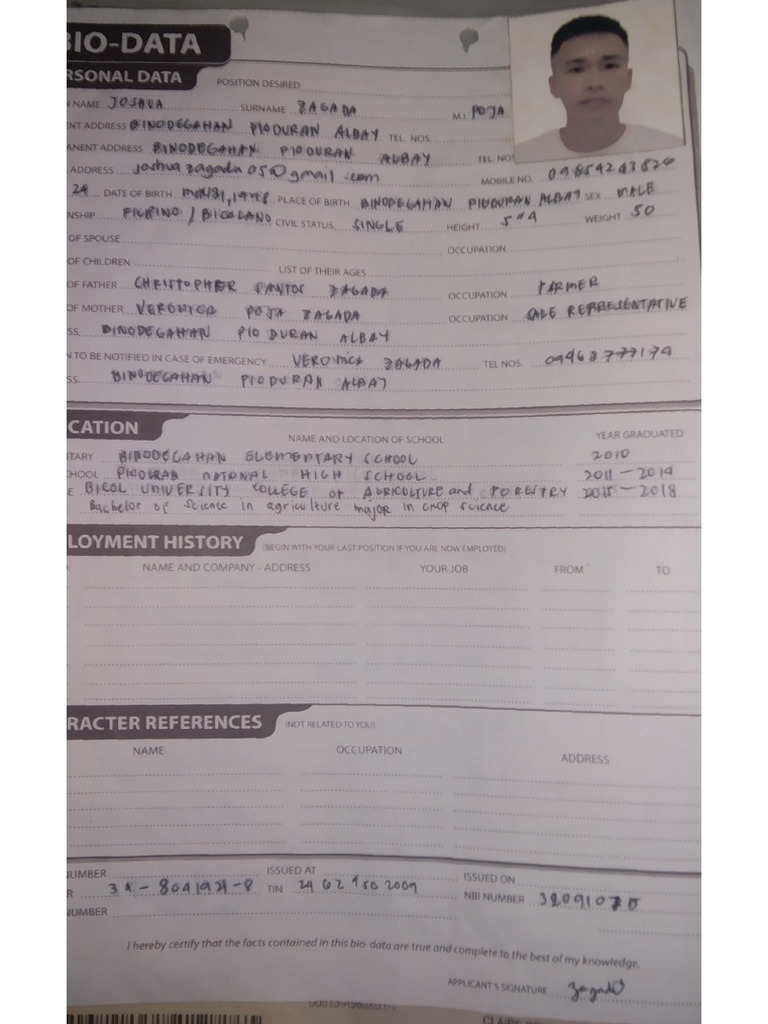 BIO-DATA
RSONAL DATA POSITION DESIRED
NAME JOSHUA SURNAME ZAGADA M.I. POJA
NT ADDRESS BINODEGAHAN PIODURAN ALBAY TEL. NOS.
ANENT ADDRESS BINODEGAHAN PIODURAN ALBAY TEL. NOS
ADDRESS joshua zagada 05@gmail.com MOBILE NO.
24 DATE OF BIRTH PLACE OF BIRTH BINODEGAHAN PIODURAN ALBAY SEX MALE
NSHIP FILIPINO / BICOLANO CIVIL STATUS SINGLE HEIGHT 5"4 WEIGHT 50
OF SPOUSE OCCUPATION
OF CHILDREN LIST OF THEIR AGES
OF FATHER CHRISTOPHER SANTOS ZAGADA OCCUPATION FARMER
OF MOTHER VERONICA POJA ZAGADA OCCUPATION SALE REPRESENTATIVE
SS BINODEGAHAN PIO DURAN ALBAY
TO BE NOTIFIED IN CASE OF EMERGENCY VERONICA ZAGADA TEL NOS.
SS. BINODEGAHAN PIODURAN ALBAY
CATION NAME AND LOCATION OF SCHOOL YEAR GRADUATED
TARY BINODEGAHAN ELEMENTARY SCHOOL 2010
HOOL PIODURAN NATIONAL HIGH SCHOOL 2011 - 2014
E BICOL UNIVERSITY COLLEGE OF AGRICULTURE and FORESTRY 2015 - 2018
Bachelor of science in agriculture major in crop science
LOYMENT HISTORY (BEGIN WITH YOUR LAST POSITION IF YOU ARE NOW EMPLOYED)
NAME AND COMPANY - ADDRESS YOUR JOB FROM TO
RACTER REFERENCES (NOT RELATED TO YOU)
NAME OCCUPATION ADDRESS
UMBER ISSUED AT ISSUED ON
R TIN NBI NUMBER
UMBER
I hereby certify that the facts contained in this bio-data are true and complete to the best of my knowledge.
APPLICANT'S SIGNATURE Zagada